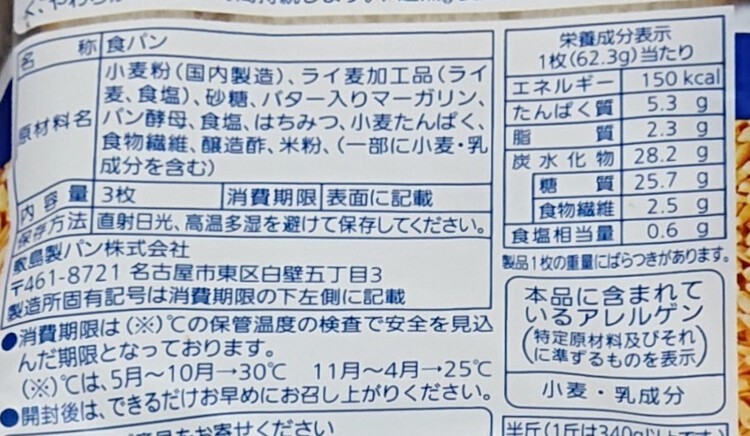 名称 食パン
原材料名 小麦粉(国内製造)、ライ麦加工品(ライ
麦、食塩)、砂糖、バター入りマーガリン、
パン酵母、食塩、はちみつ、小麦たんぱく、
食物繊維、醸造酢、米粉、(一部に小麦・乳
成分を含む)
内容量 3枚 消費期限 表面に記載
保存方法 直射日光、高温多湿を避けて保存してください。
敷島製パン株式会社
〒461-8721 名古屋市東区白壁五丁目3
製造所固有記号は消費期限の下左側に記載
●消費期限は(※)℃の保管温度の検査で安全を見込
んだ期限となっております。
(※)℃は、5月〜10月→30℃ 11月〜4月→25℃
●開封後は、できるだけお早めにお召し上がりください。
栄養成分表示
1枚(62.3g)当たり
エネルギー 150kcal
たんぱく質 5.3 g
脂質 2.3 g
炭水化物 28.2 g
糖質 25.7 g
食物繊維 2.5 g
食塩相当量 0.6 g
製品1枚の重量にばらつきがあります。
本品に含まれて
いるアレルゲン
(特定原材料及びそれ
に準ずるものを表示)
小麦・乳成分
半斤(1斤は340g以上です)